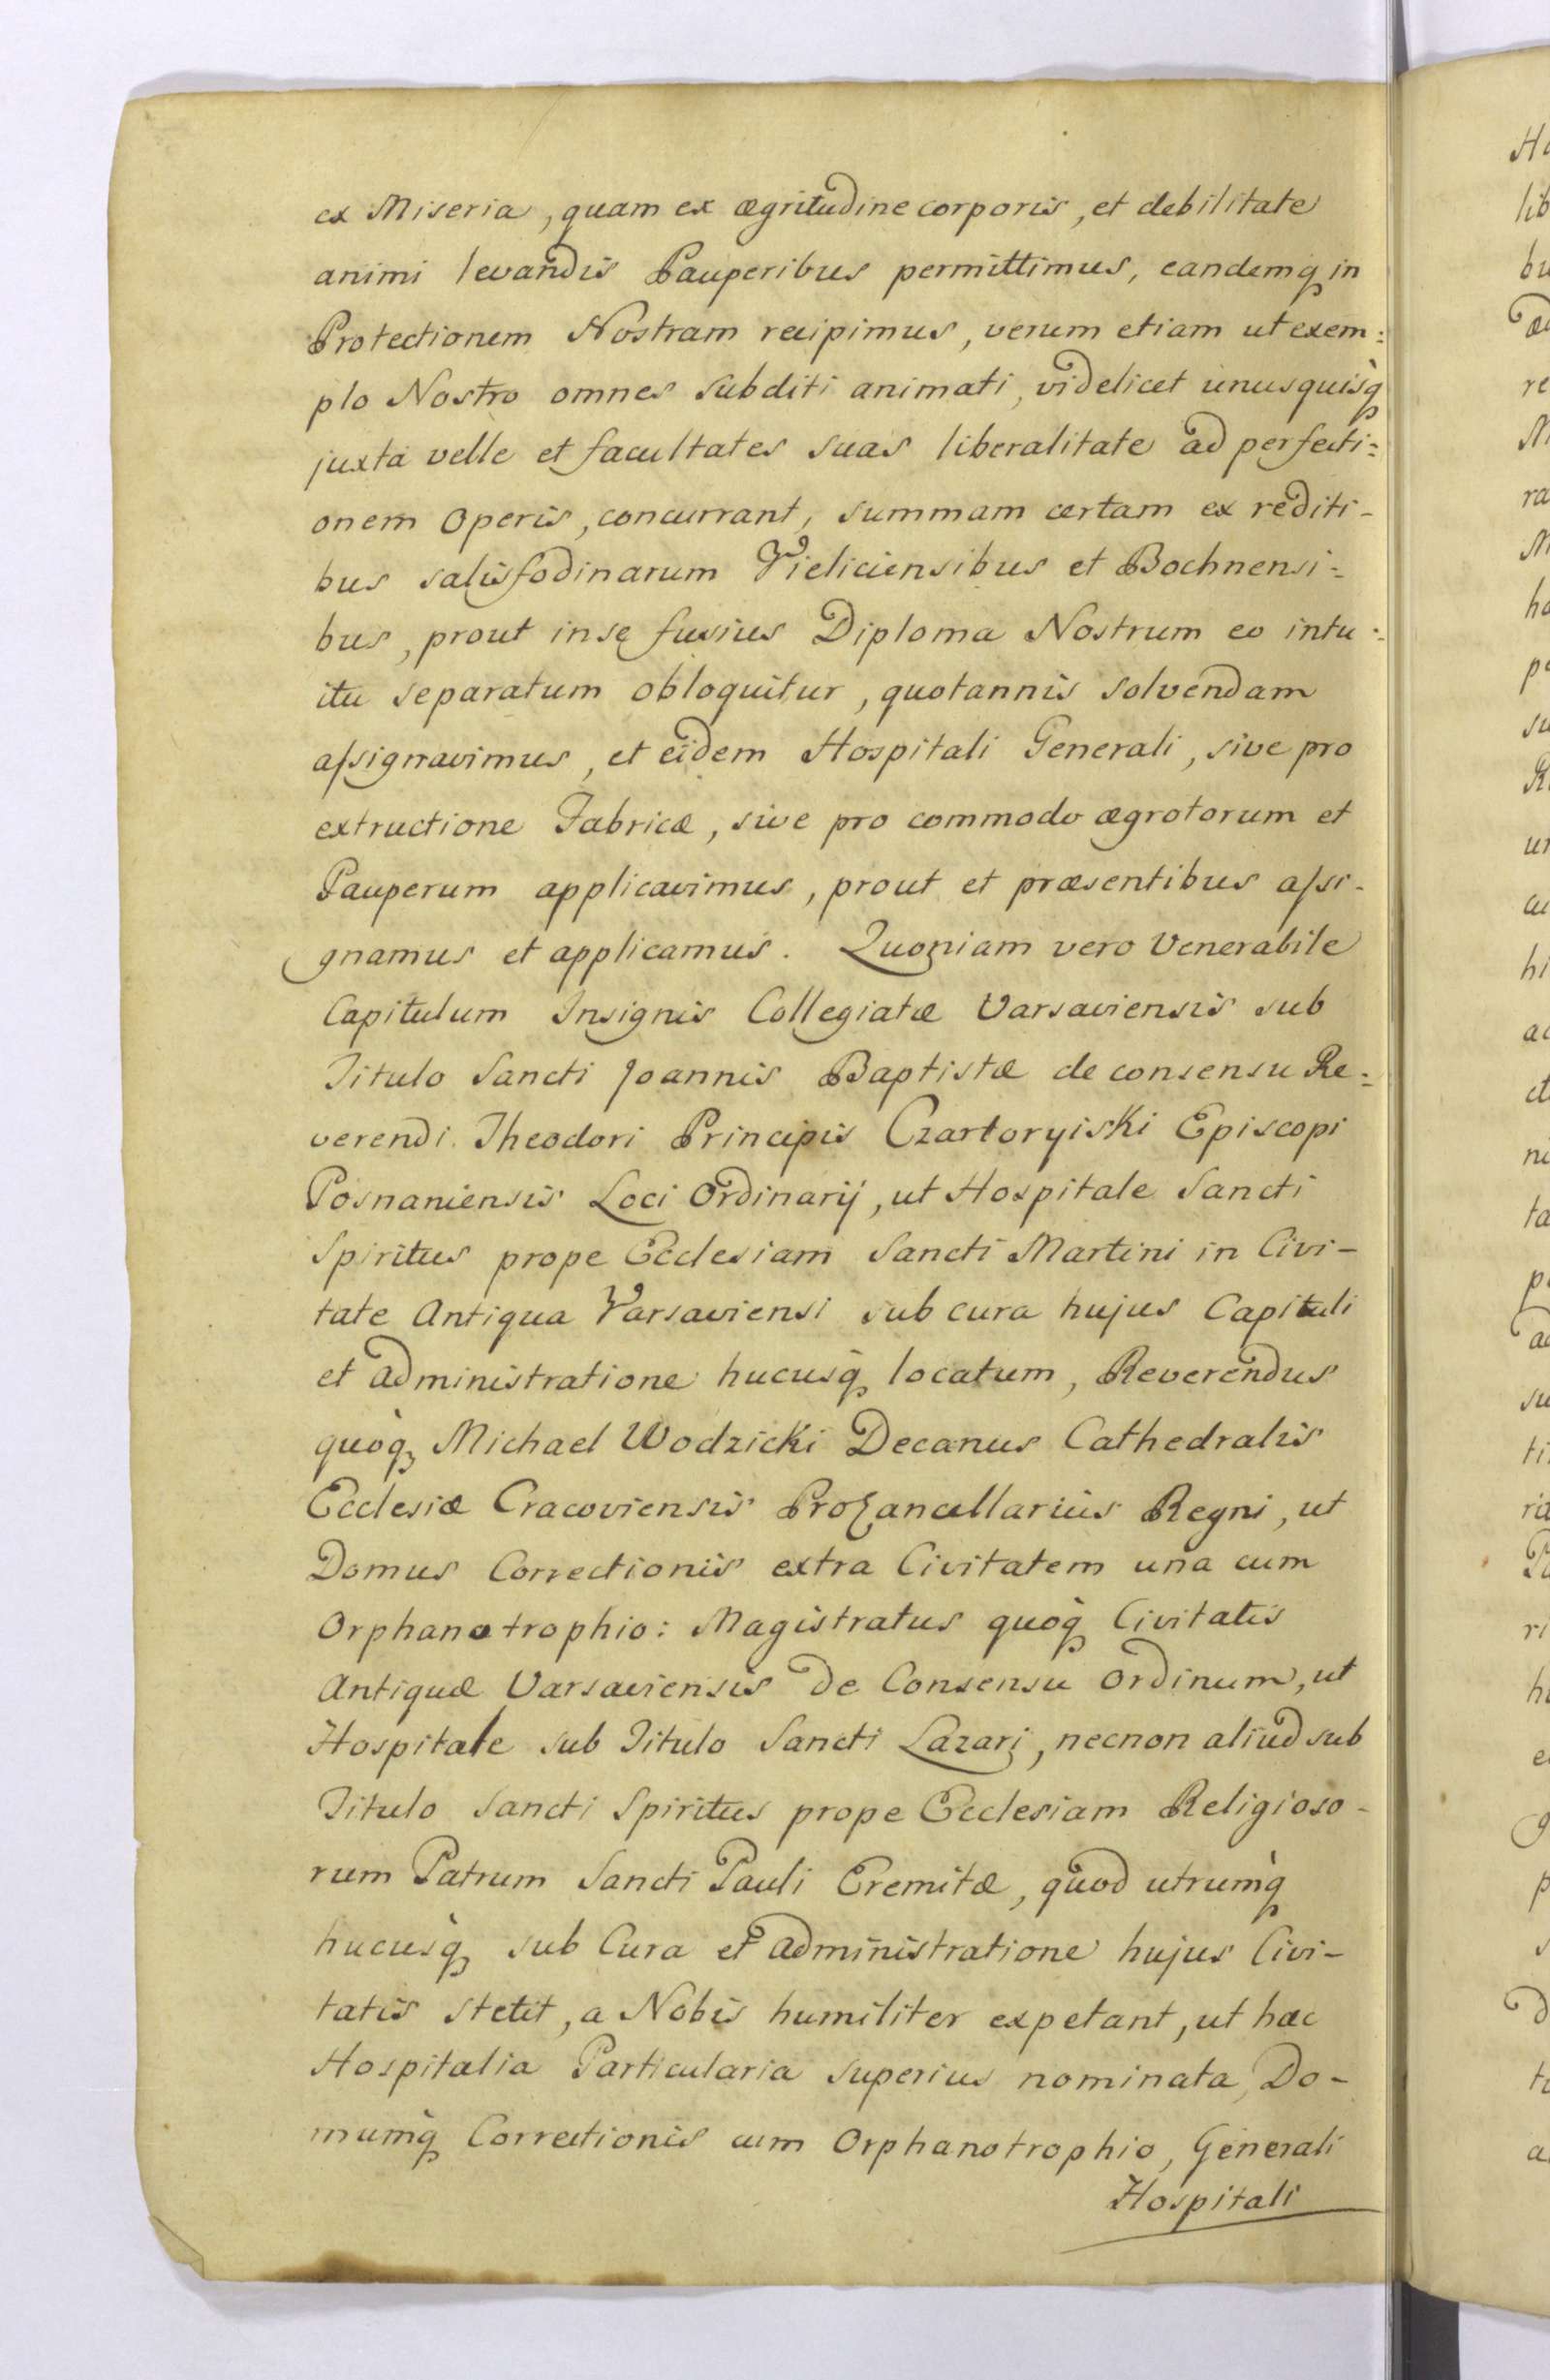 ex Miseria, quam ex ægritudine corporis, et debilitate
animi levandis Pauperibus permittimus, eandemq́ in
Protectionem Nostram recipimus, verum etiam ut exem:
plo Nostro omnes subditi animati, videlicet unusquisq́
juxta velle et facultates suas liberalitate ad perfecti:
onem Operis, concurrant, summam certam ex rediti-
bus salisfodinarum Vieliciensibus et Bochnensi:
bus, prout in se fusius Diploma Nostrum eo intu:
itu separatum obloquitur, quotannis solvendam
assignavimus, et eidem Hospitali Generali, sive pro
extructione Fabricæ, sive pro commodo ægrotorum et
Pauperum applicavimus, prout et præsentibus assi-
gnamus et applicamus. Quoniam vero Venerabile
Capitulum Insignis Collegiatæ Varsaviensis sub
Titulo Sancti Joannis Baptistæ de consensu Re:
verendi Theodori Principis Czartoryiski Episcopi
Posnaniensis Loci Ordinarij, ut Hospitale Sancti
Spiritus prope Ecclesiam Sancti Martini in Civi-
tate Antiqua Varsaviensi sub cura hujus Capituli
et administratione hucusq́ locatum, Reverendus
quoq́ Michael Wodzicki Decanus Cathedralis
Ecclesiæ Cracoviensis ProCancellarius Regni, ut
Domus Correctionis extra Civitatem una cum
Orphanotrophio: Magistratus quoq́ Civitatis
Antiquæ Varsaviensis de Consensu ordinum, ut
Hospitale sub Titulo Sancti Lazari, necnon aliud sub
Titulo Sancti Spiritus prope Ecclesiam Religioso-
rum Patrum Sancti Pauli Eremitæ, quod utrumq́
hucusq́ sub Cura et administratione hujus Civi-
tatis stetit, a Nobis humiliter expetant, ut hæc
Hospitalia Particularia superius nominata, Do-
mumq́ Correctionis cum Orphanotrophio, Generali
Hospitali